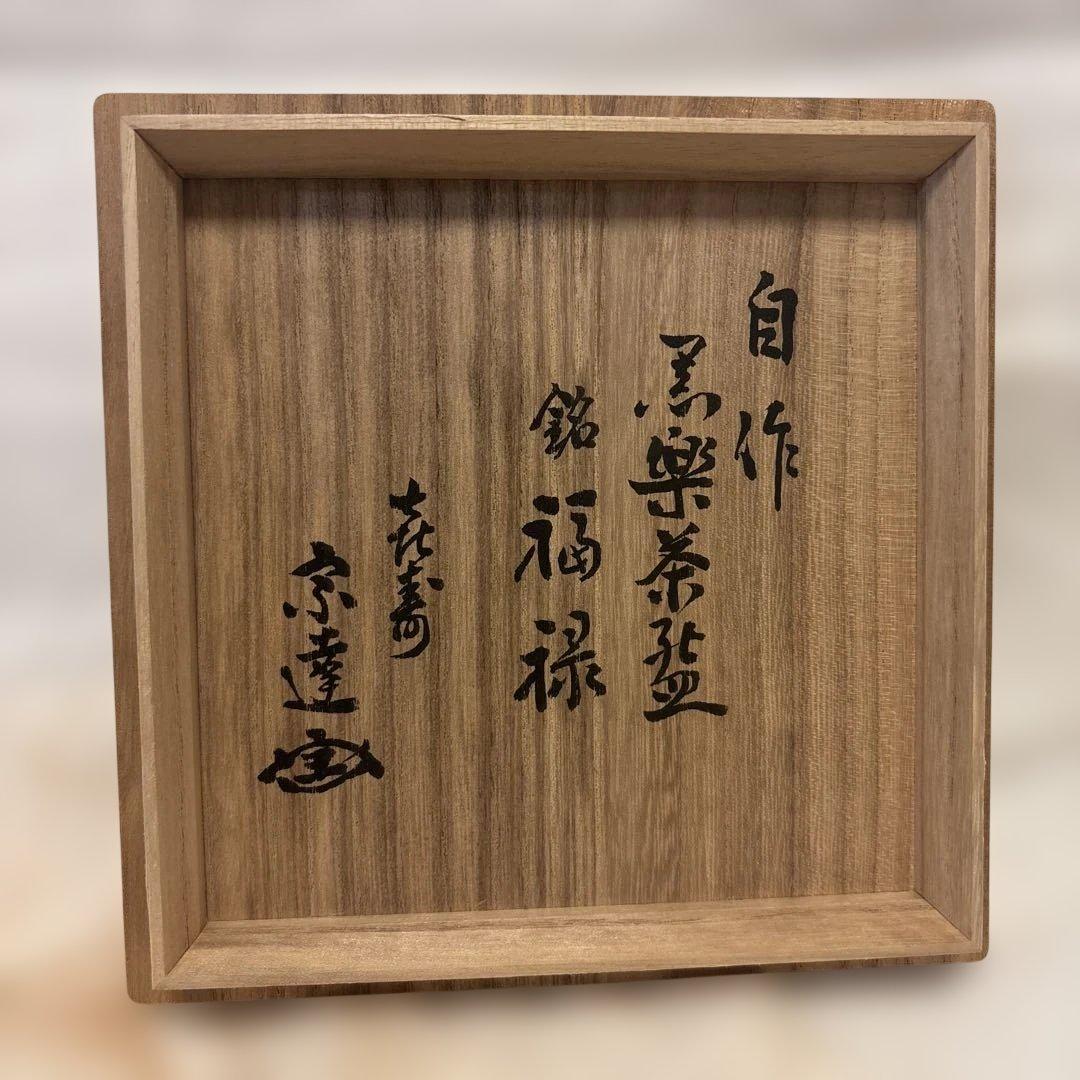 自作
黒楽茶盌
銘 福禄
喜寿
宗達